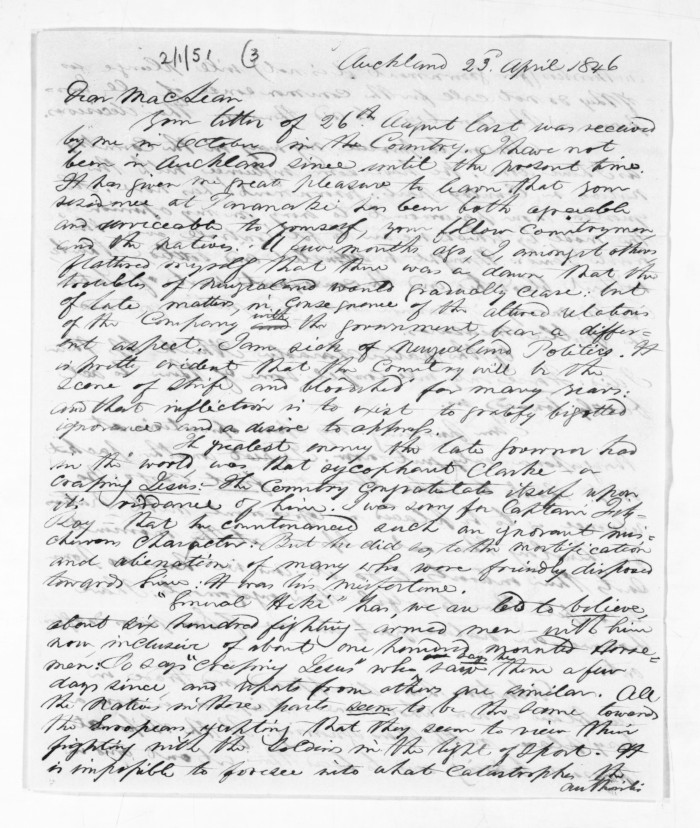 2/1/51 (3
Auckland 23d April 1846
Dear MacLean
Your letter of 26th August last was received
by me in October in the Country. I have not
been in Auckland since until the present time.
It has given me great pleasure to learn that your
residence at Taranaki has been both agreeable
and serviceable to yourself, your fellow Countrymen
and the natives. A few months ago, I, amongst others
flattered myself that there was a dawn that the
troubles of Newzealand would gradually cease: but
of late, matters, in Consequence of the altered relations
of the Company with the government bear a differ-
ent aspect. I am sick of Newzealand Politics. It
is pretty evident that the Country will be the
scene of strife and bloodshed for many years:
and that infliction is to exist to gratify bigotted
ignorance and a desire to oppress.
The greatest enemy the late governor had
in the world was that sycophant Clarke a
Creeping Jesus: The Country Congratulates itself upon
its riddance of him. I was sorry for Captain Fitz-
Roy that he countenanced such an ignorant mis-
chevous Character: But he did so to the mortification
and alienation of many who were friendly disposed
towards him: It was his misfortune.
"General Hiki" has, we are led to believe,
about six hundred fighting armed men with him
now, inclusive of about one hundred mounted Horse-
men: So says "Creeping Jesus" who says he saw them a few
days since and reports from others are similar. All
the Natives in these parts seem to be the same towards
the Europeans, excepting that they seem to view their
fighting with the Soldiers in the light of Sport. It
is impossible to foresee into what Catastrophes the
authorities